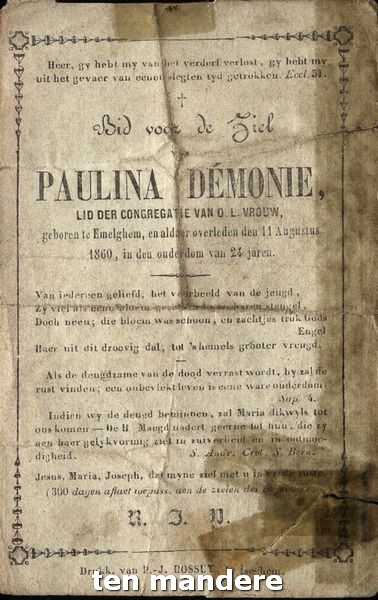 Heer, gy hebt my van het verderf verlost, gy hebt my
uit het gevaer van eenen slegten tyd getrokken. Eccl. 51.
†
Bid voor de Ziel
VAN
PAULINA DÉMONIE,
LID DER CONGREGATIE VAN O. L. VROUW,
geboren te Emelghem, en aldaer overleden den 11 Augustus
1860, in den ouderdom van 24 jaren.
Van iedereen geliefd, het voorbeeld van de jeugd,
Zy viel als eene bloem van haren stengel,
Doch neen; die bloem was schoon, en zachtjes trok Gods
Engel
Haer uit dit droevig dal, tot 's hemels grooter vreugd.
Als de deugdzame van de dood verrast wordt, hy zal de
rust vinden; een onbevlekt leven is eene ware ouderdom.
Sap. 4.
Indien wy de deugd beminnen, zal Maria dikwyls tot
ons komen — De H. Maegd nadert geerne tot hun, die zy
aen haer gelykvormig ziet in zuiverheid en in ootmoe-
digheid. S. Andr. Cret. S. Bern.
Jesus, Maria, Joseph, dat myne ziel met u in vrede ruste.
(300 dagen aflaet toepass. aen de zielen des
R. I. P.
Drukk. van D.-J. BOSSUT Iseghem.
ten mandere